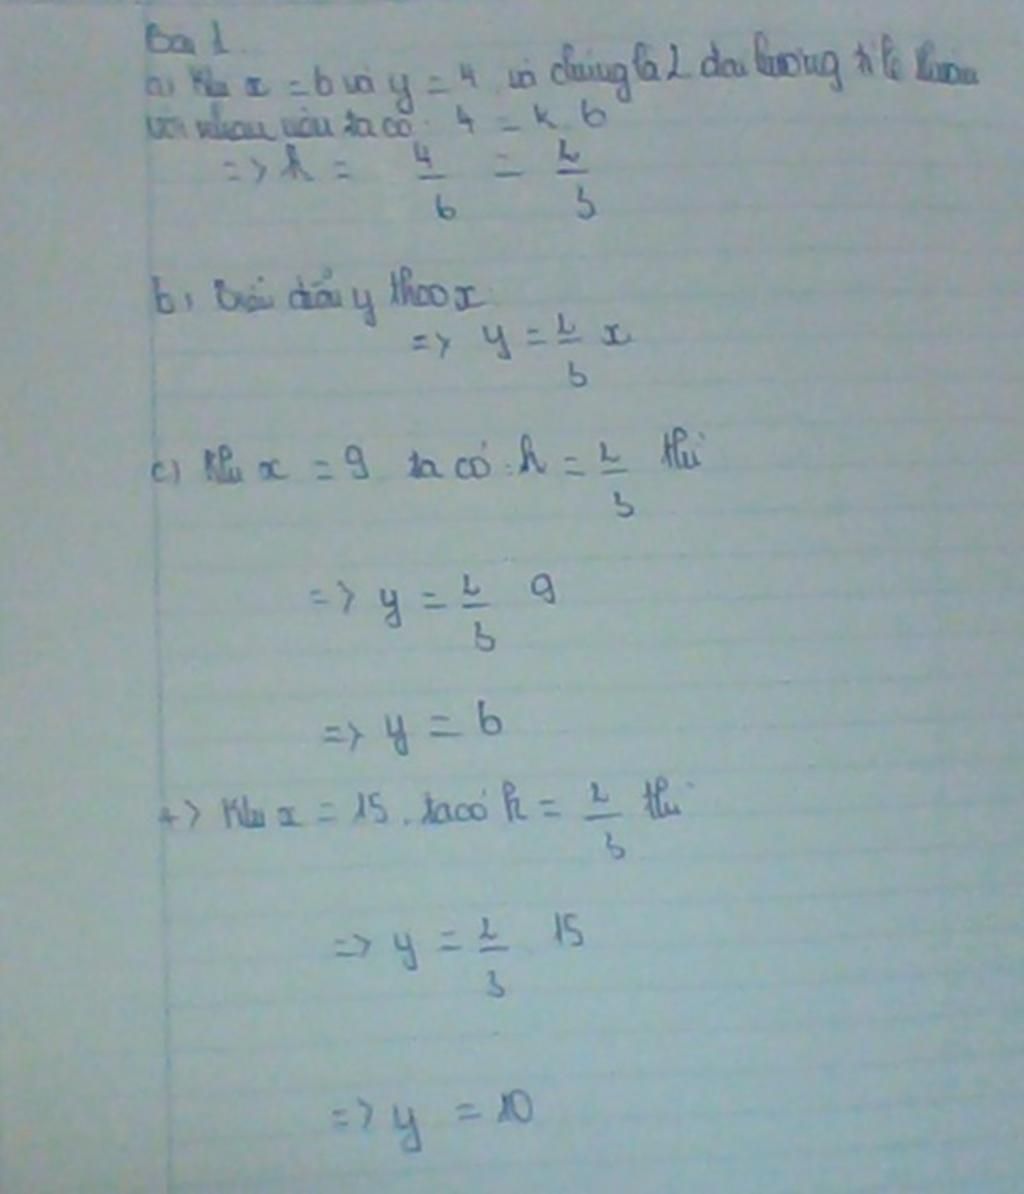 Bài 1
a) Khi x = 6 và y = 4 và chúng là 2 đại lượng tỉ lệ thuận
với nhau nên ta có: 4 = k. 6
=> k = 4/6 = 2/3
b, Biểu diễn y theo x
=> y = 2/3 x
c) Khi x = 9 ta có: k = 2/3 thì
=> y = 2/3 . 9
=> y = 6
+> Khi x = 15. ta có k = 2/3 thì
=> y = 2/3 . 15
=> y = 10